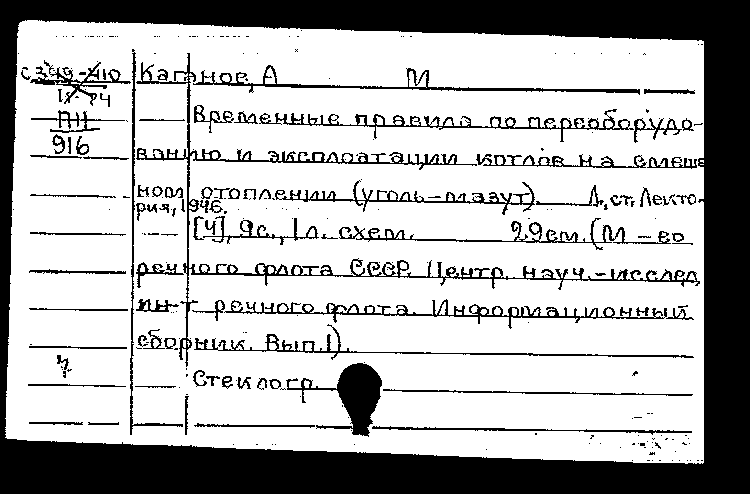 с349-410 Каганов, А М
18-84
П11 Временные правила по переоборудо-
916
ванию и эксплоатации котлов на смеше
ном отоплении (уголь-мазут). Л., ст. Лекто-
рия, 1946.
[4], 9с., 1л. схем. 29см. (М-во
речного флота СССР. Центр. науч.-исслед.
ин-т речного флота. Информационный
сборник. Вып.1).
Стеклогр.